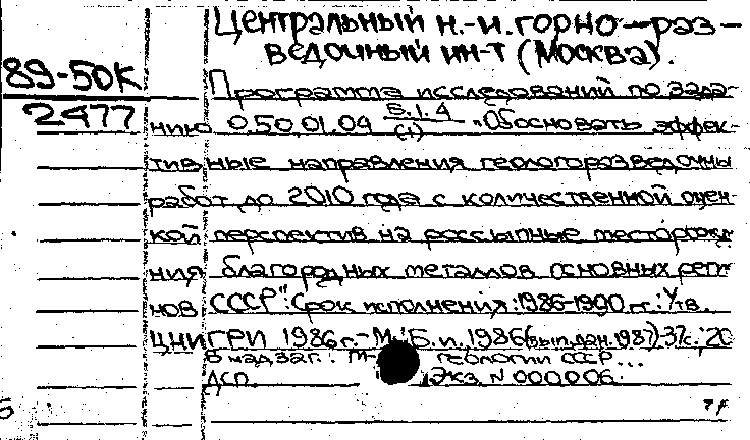 Центральный н.-и. горно-раз-
ведочный ин-т (Москва).
89-50К
2477
Программа исследований по зада-
нию 0.50.01.04 Б.1.4 (1) "Обосновать эффек-
тивные направления геологоразведочны
работ до 2010 года с количественной оцен-
кой перспектив на россыпные месторожде
ния благородных металлов основных реги
нов СССР": Срок исполнения: 1986-1990 гг.: Утв.
ЦНИГРИ 1986 г.- М.: Б.и., 1986 (вып. дан. 1987) 37 с.; 20
В надзаг.: М- геологии СССР...
ДСП. Экз. N 000006.